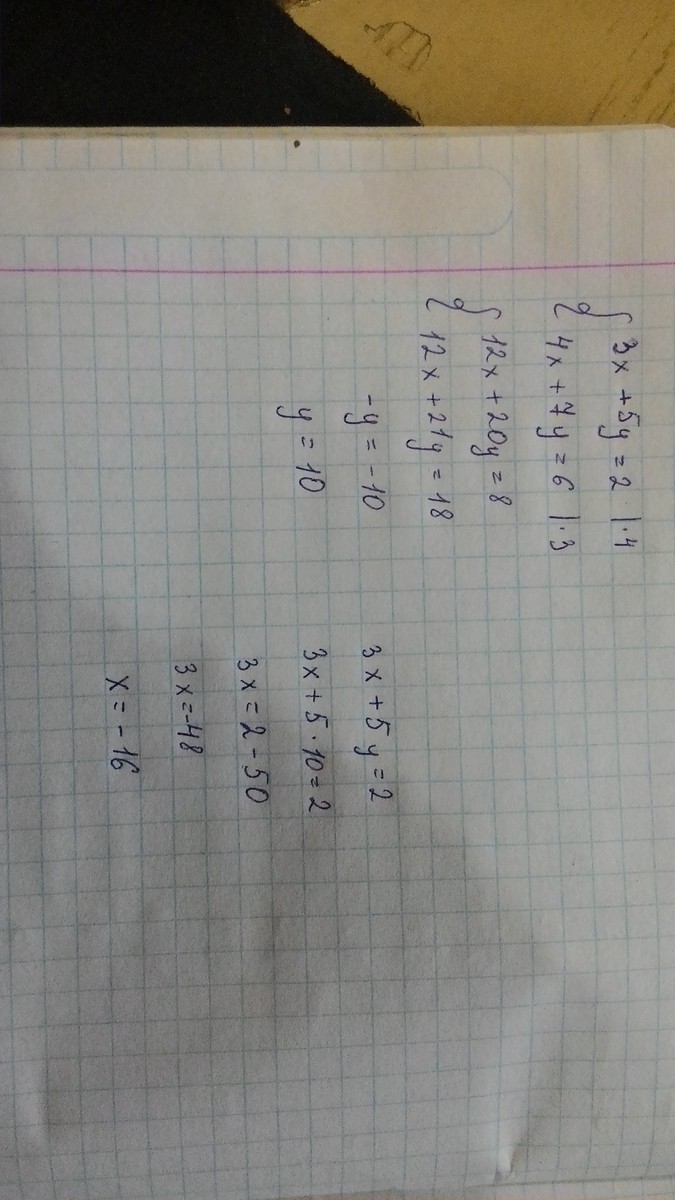 3x + 5y = 2 |·4
4x + 7y = 6 |·3
12x + 20y = 8
12x + 21y = 18
-y = -10
y = 10
3x + 5y = 2
3x + 5·10 = 2
3x = 2 - 50
3x = -48
x = -16